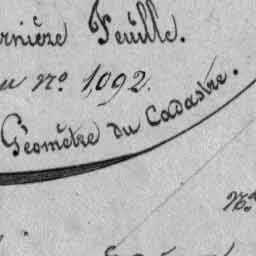 rnière Feuille.
u Nº. 1,092.
Géomètre du Cadastre.